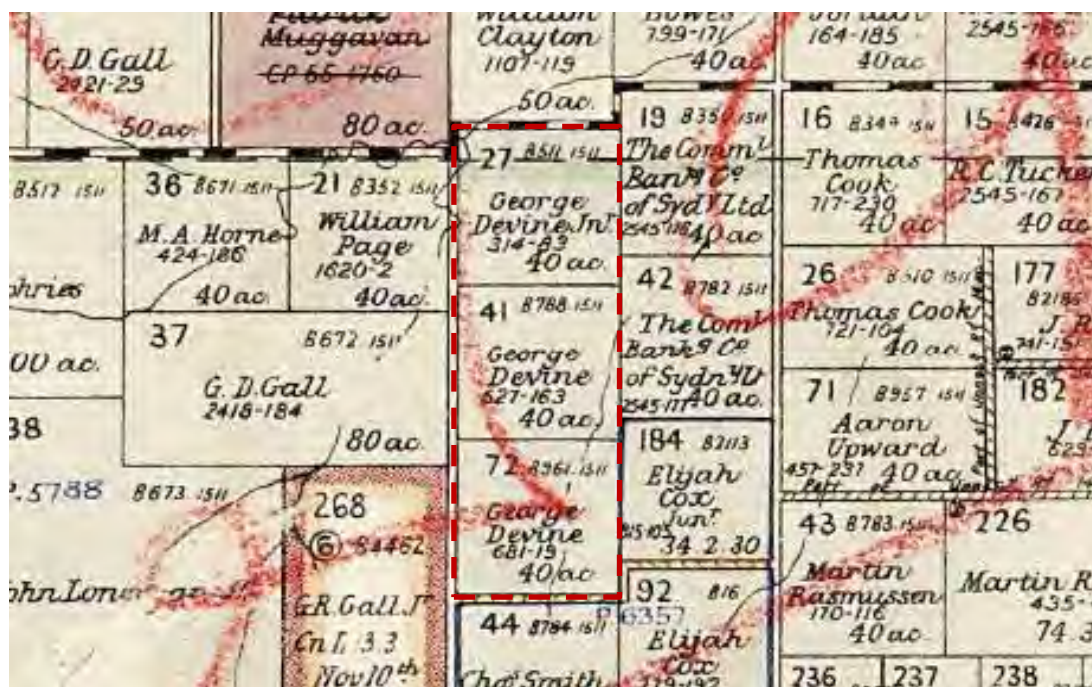 G. D. Gall
2421-29
50 ac.
Patrick
Muggavan
CP 65-1760
80 ac.
William
Clayton
1107-119
50 ac.
Bowes
799-171
40 ac.
164-185
40 ac.
40 ac.
8517 1511
36 8671 1511
M. A. Horne
424-186
40 ac.
21 8352 1511
William
Page
1620-2
40 ac.
27 8511 1511
George
Devine Jnr
314-83
40 ac.
19 1511
The Comml
Bankg Co
of Sydy Ltd
2545-116
40 ac
16 1511
Thomas
Cook
717-230
40 ac.
15 8426
R. C. Tucker
2545-167
40 ac.
hries
00 ac.
37 8672 1511
G. D. Gall
2418-184
80 ac.
41 8788 1511
George
Devine
627-163
40 ac.
42 8782 1511
The Coml
Bankg Co
of Sydny Lt
2545-117
40 ac.
26 8510 1511
Thomas Cook
721-104
40 ac.
177
71 8957 1511
Aaron
Upward
457-237
40 ac.
182
38
P.5788
8673 1511
268
6 84462
G. R. Gall Jr
Cn L 33
Nov 10th
72 8961 1511
George
Devine
681-19
40 ac
184 82113
Elijah
Cox
Junr
34 2 30
43 8783 1511
Martin
Rasmussen
170-116
40 ac.
226
Martin R
435-
74.
44 8784 1511
Chas Smith
P 6357
92 816
Elijah
Cox
236
237
238